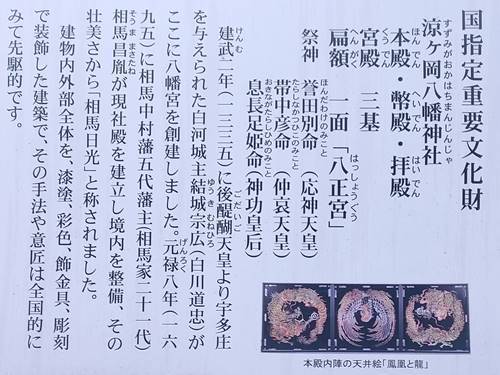 国指定重要文化財
涼ヶ岡八幡神社
すずみがおかはちまんじんじゃ
本殿・幣殿・拝殿
ほんでん へいでん はいでん
宮殿 三基
くうでん
扁額 一面「八正宮」
へんがく はっしょうぐう
祭神 誉田別命(応神天皇)
ほんだわけのみこと
帯中彦命(仲哀天皇)
たらしなかつひこのみこと
息長足姫命(神功皇后)
おきながたらしひめのみこと
建武二年(一三三五)に後醍醐天皇より宇多庄
けんむ ごだいご
を与えられた白河城主結城宗広(白川道忠)が
ゆうきむねひろ
ここに八幡宮を創建しました。元禄八年(一六
げんろく
九五)に相馬中村藩五代藩主(相馬家二十一代)
相馬昌胤が現社殿を建立し境内を整備、その
そうままさたね
壮美さから「相馬日光」と称されました。
建物内外部全体を、漆塗、彩色、飾金具、彫刻
で装飾した建築で、その手法や意匠は全国的に
みて先駆的です。
本殿内陣の天井絵「鳳凰と龍」